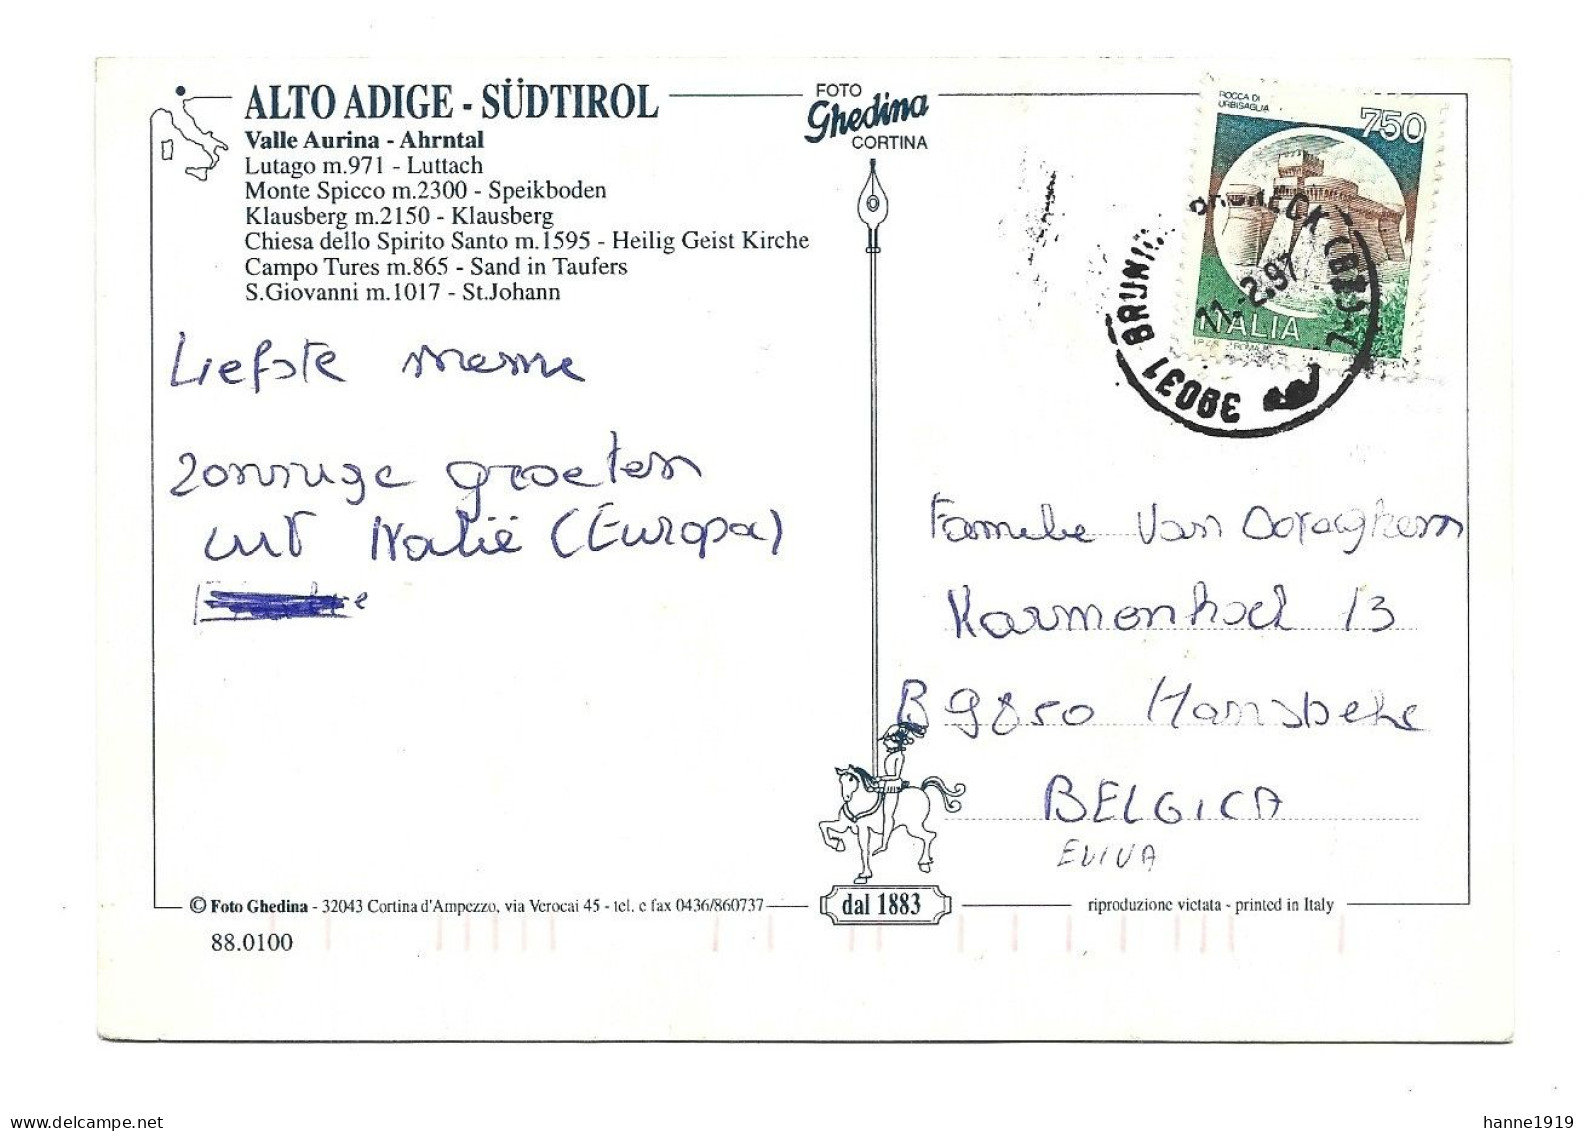 ALTO ADIGE - SÜDTIROL
Valle Aurina - Ahrntal
Lutago m.971 - Luttach
Monte Spicco m.2300 - Speikboden
Klausberg m.2150 - Klausberg
Chiesa dello Spirito Santo m.1595 - Heilig Geist Kirche
Campo Tures m.865 - Sand in Taufers
S.Giovanni m.1017 - St.Johann
FOTO
Ghedina
CORTINA
ROCCA DI
URBISAGLIA
750
ITALIA
39031
11.2.97
Liefste meme
zonnige groeten
uit Italië (Europa)
Familie Van
13
B 9850 Hansbeke
BELGICA
© Foto Ghedina - 32043 Cortina d'Ampezzo, via Verocai 45 - tel. e fax 0436/860737
dal 1883
riproduzione vietata - printed in Italy
88.0100
www.delcampe.net
hanne1919